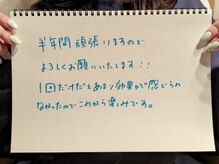 半年間頑張りますので
よろしくお願いいたします!!
1回だけだとあまり効果が感じられ
なかったのでこれから楽しみです。